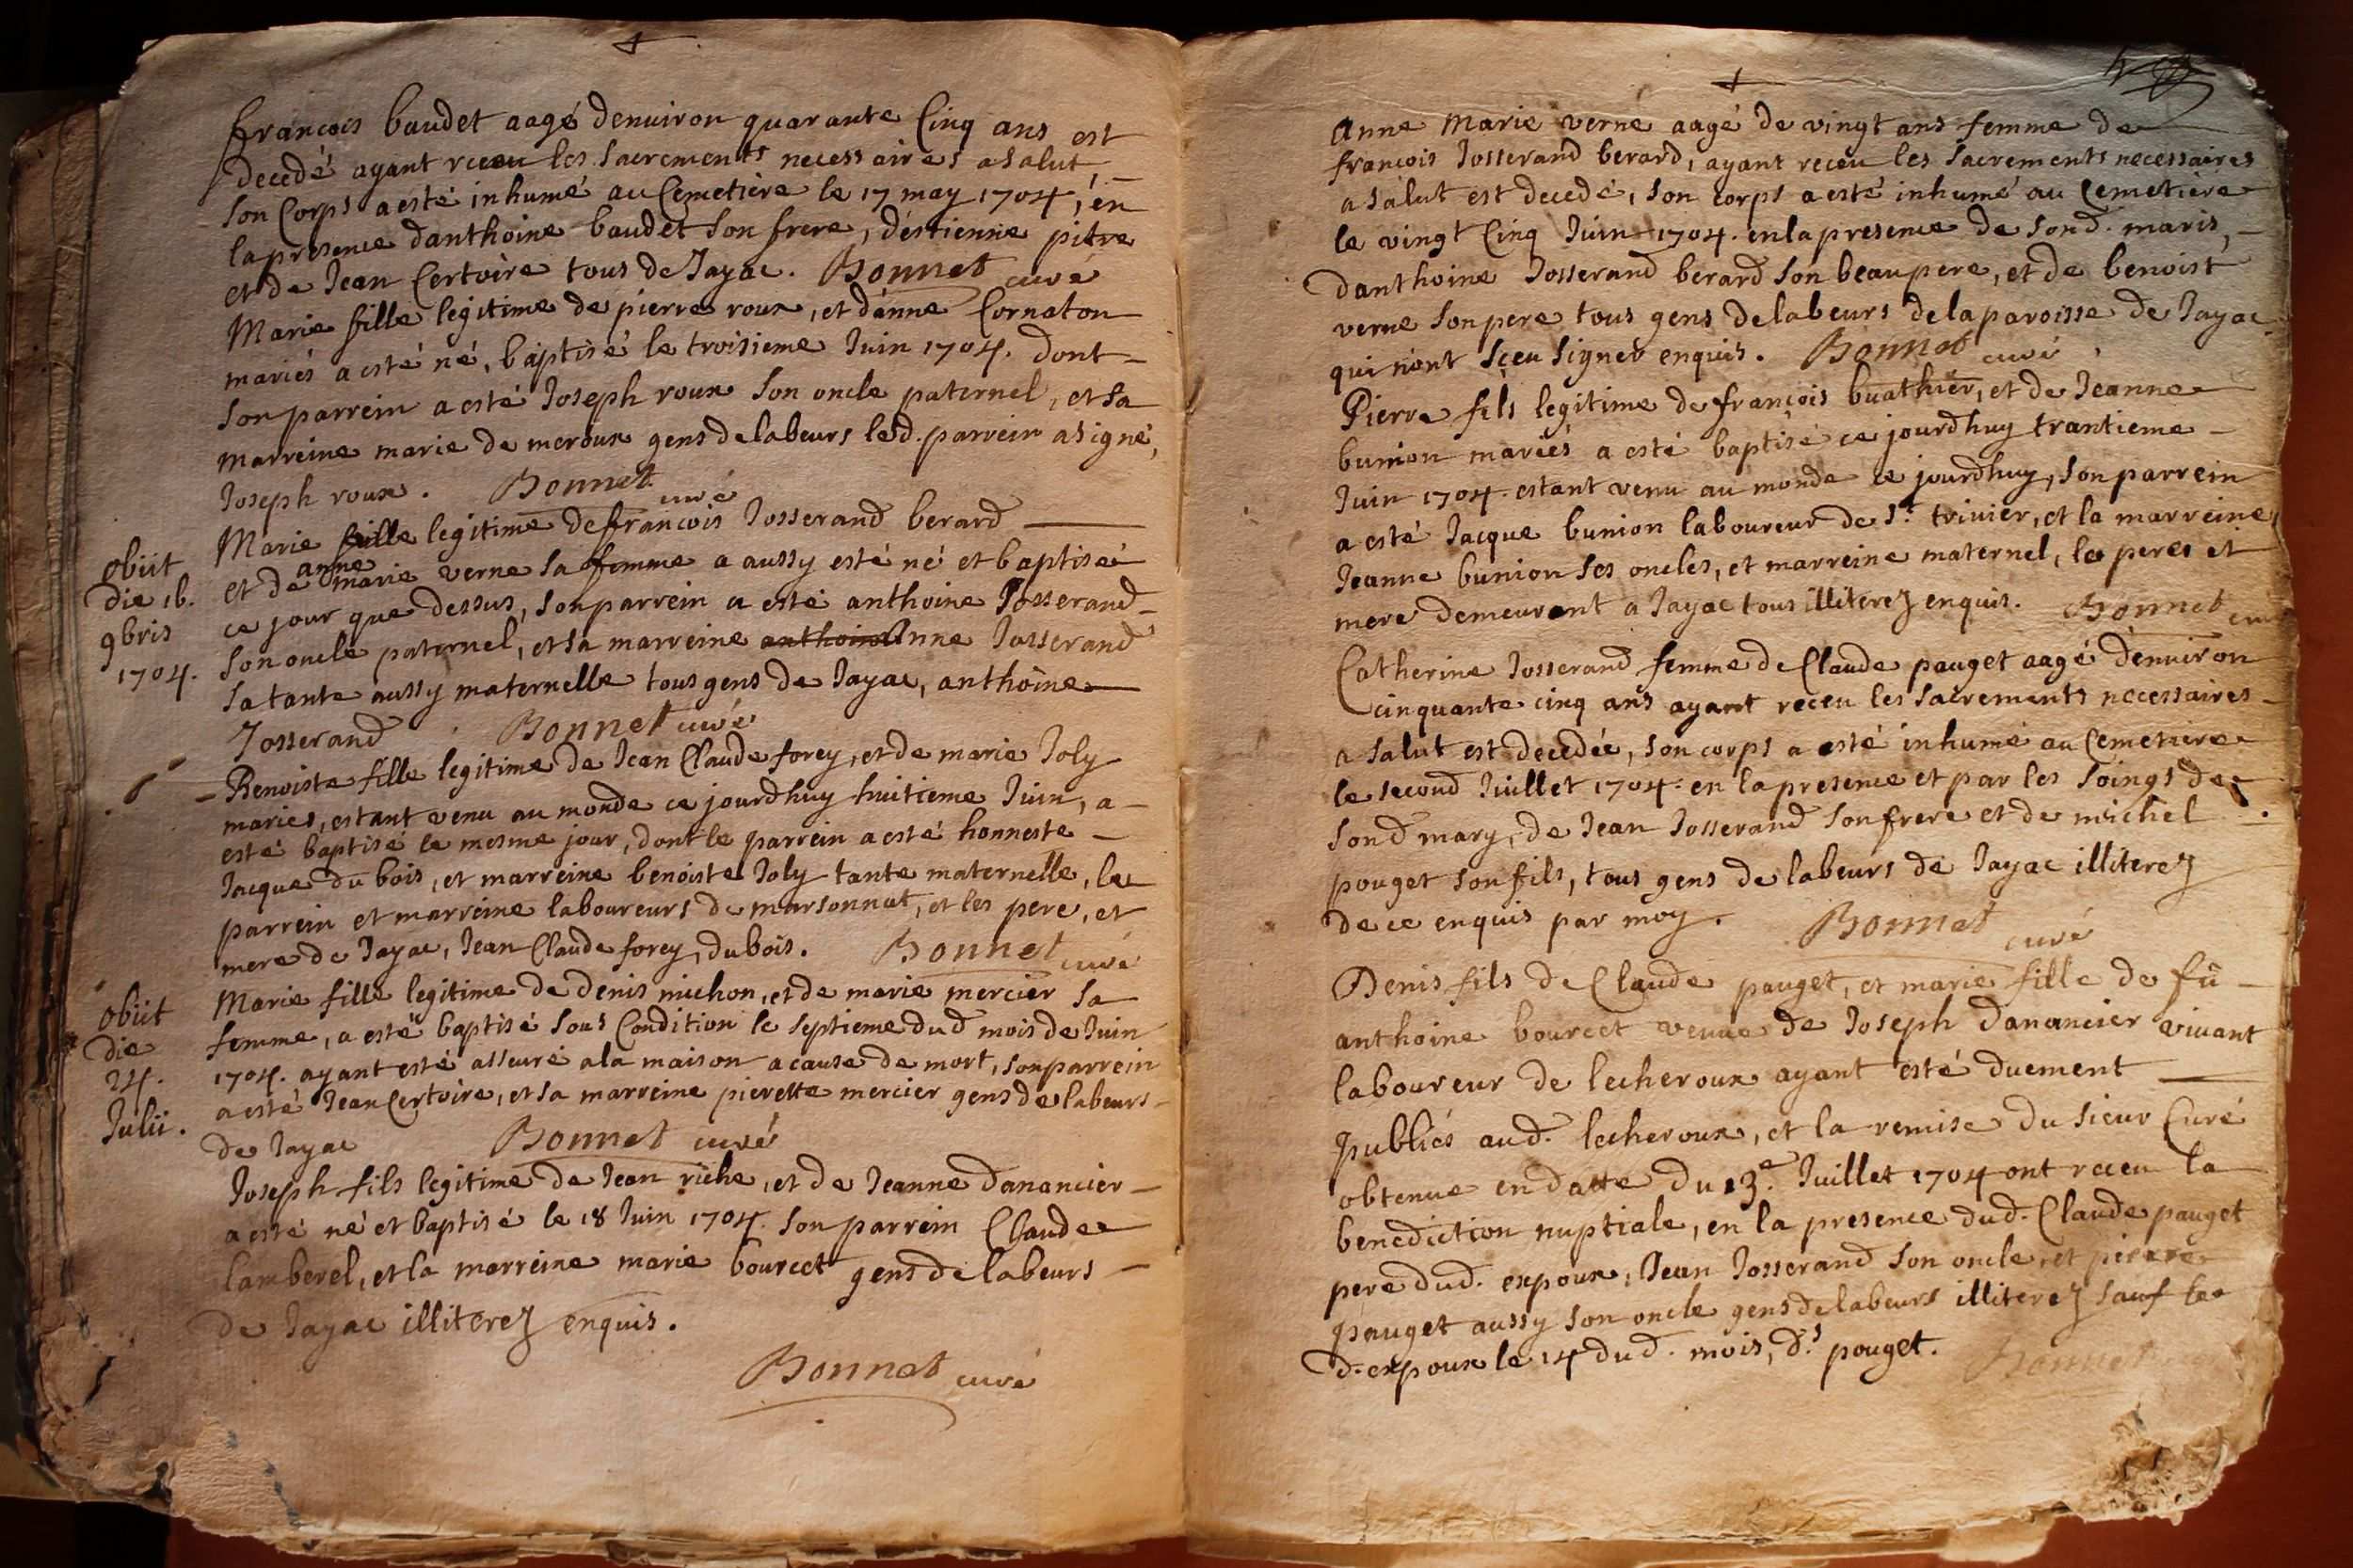 françois baudet aagé denuiron quarante Cinq ans est
decedé ayant receu les sacrements necessaires a salut,
son Corps a esté inhumé au Cemetiere le 17 may 1704, en
la presence danthoine baudet son frere, d'estienne pitre
et de Jean Certoire tous de Jayac. Bonnet curé
Marie fille legitime de pierre roux, et d'anne Cornaton
mariés a esté né, baptisé le troisieme Juin 1704. dont
son parrein a esté Joseph roux son oncle paternel, et sa
marreine marie de meroux gens de labeurs led. parrein a signé,
Joseph roux. Bonnet curé
Marie fille legitime de francois Josserand berard
obiit
die 16.
9bris
1704.
anne
et de marie verne sa femme a aussy esté né et baptisé
ce jour que dessus, son parrein a esté anthoine Josserand
son oncle paternel, et sa marreine anthoine Anne Josserand
sa tante aussy maternelle tous gens de Jayac, anthoine
Josserand Bonnet curé
Benoiste fille legitime de Jean Claude forey, et de marie Joly
mariés, estant venu au monde ce jourdhuy huitieme Juin, a
esté baptisé le mesme jour, dont le parrein a esté honneste
Jacque du bois, et marreine benoiste Joly tante maternelle, les
parrein et marreine laboureurs de marsonnat, et les pere, et
mere de Jayac, Jean Claude forey, dubois. Bonnet curé
obiit
die
24.
Julii.
Marie fille legitime de denis michon, et de marie mercier sa
femme, a esté baptisé sous Condition le septieme dud mois de Juin
1704. ayant esté asseuré a la maison a cause de mort, son parrein
a esté Jean Certoire, et sa marreine pierette mercier gens de labeurs
de Jayac Bonnet curé
Joseph fils legitime de Jean riche, et de Jeanne danancier
a esté né et baptisé le 18 Juin 1704. son parrein Claude
lamberel, et la marreine marie bourcet gens de labeurs
de Jayac illiterez enquis.
Bonnet curé
Anne Marie verne aagé de vingt ans femme de
francois Josserand berard, ayant receu les sacrements necessaires
a salut est decedé, son corps a esté inhumé au Cemetiere
le vingt Cinq Juin 1704. en la presence de sond. maris,
danthoine Josserand berard son beaupere, et de benoist
verne son pere tous gens de labeurs de la paroisse de Jayac
qui n'ont sceu signer enquis. Bonnet curé
Pierre fils legitime de françois buathier, et de Jeanne
bunion mariés a esté baptisé ce jourdhuy trantieme
Juin 1704. estant venu au monde ce jourdhuy, son parrein
a esté Jacque bunion laboureur de St. trivier, et la marreine
Jeanne bunion ses oncles, et marreine maternel, les peres et
mere demeurant a Jayac tous illiterez enquis. Bonnet curé
Catherine Josserand femme de Claude pauget aagé denuiron
cinquante cinq ans ayant receu les sacrements necessaires
a salut est decedée, son corps a esté inhumé au Cemetiere
le second Juillet 1704. en la presence et par les soings de
sond mary, de Jean Josserand son frere et de michel
pouget son fils, tous gens de labeurs de Jayac illiterez
de ce enquis par moy. Bonnet curé
Denis fils de Claude pauget, et marie fille de fû
anthoine bourcet venue de Joseph danancier vivant
laboureur de lecheroux ayant esté duement
publiés aud. lecheroux, et la remise du sieur Curé
obtenue en datte du 13.e Juillet 1704 ont receu la
benediction nuptiale, en la presence dud. Claude pauget
pere dud. expoux, Jean Josserand son oncle, et pierre
pauget aussy son oncle gens de labeurs illiterez sauf le
d. expoux le 14 dud. mois, d.s pouget. Bonnet